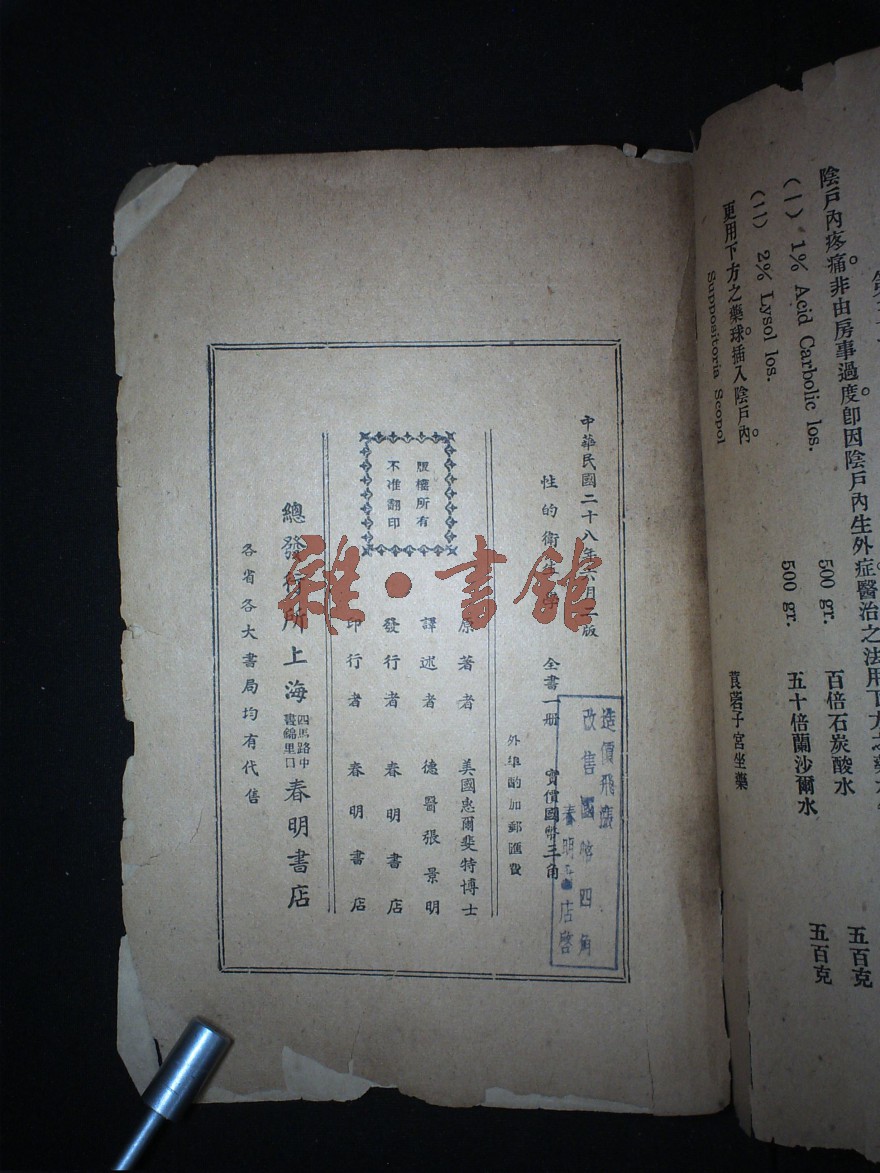 陰戶內疼痛。非由房事過度。卽因陰戶內生外症。醫治之法用下方之藥
(一) 1% Acid Carbolic los. 500 gr. 百倍石炭酸水 五百克
(二) 2% Lysol los. 500 gr. 五十倍蘭沙爾水 五百克
更用下方之藥球。插入陰戶內。
Suppositoria Scopol 莨菪子宮坐藥
中華民國二十八年六月二版
性的衛生學 全書一册 實價國幣三角
外埠酌加郵匯費
原著者 美國忠爾斐特博士
譯述者 德醫張景明
發行者 春明書店
印行者 春明書店
版權所有
不准翻印
總發行所上海四馬路中晝錦里口春明書店
各省各大書局均有代售
造價飛漲
改售國幣四角
春明書店啓
雜·書館